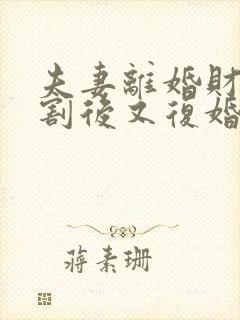 夫妻離婚財
割後又復婚
蔣素珊